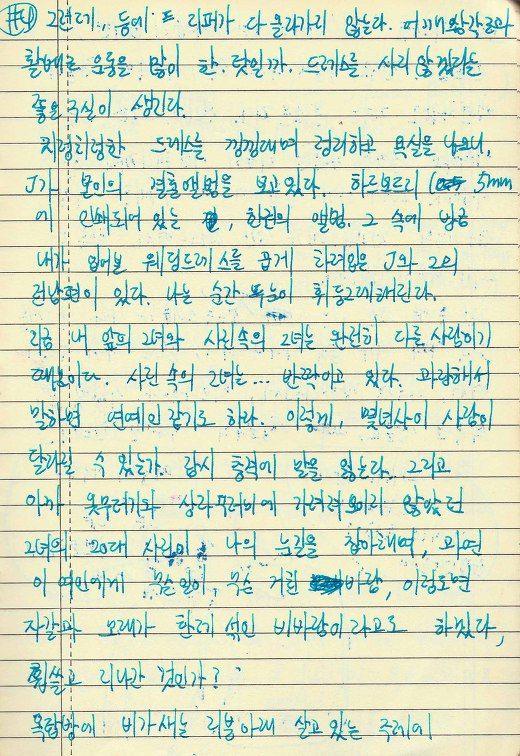 #4) 그런데, 등에 드 지퍼가 다 올라가지 않는다. 어깨와 삼각근과
활배근 운동을 많이 한 탓일까. 드레스를 사지 않겠다는
좋은 구실이 생긴다.
치렁치렁한 드레스를 낑낑대며 정리하고 욕실을 나오니,
J가 본인의 결혼앨범을 보고 있다. 하드보드지 ( 5mm
에 인쇄되어 있는, 한권의 앨범. 그 속에 방금
내가 입어본 웨딩드레스를 곱게 차려입은 J와 그의
전남편이 있다. 나는 순간 눈이 휘둥그레해진다.
지금 내 앞의 그녀와 사진속의 그녀는 완전히 다른 사람이기
때문이다. 사진 속의 그녀는... 반짝이고 있다. 과장해서
말하면 연예인 같기도 하다. 이렇게, 몇년사이 사람이
달라질 수 있는가. 잠시 충격에 말을 잃는다. 그리고
아까 옷무더기와 상자 무더기에 가려져 보이지 않았던
그녀의 20대 사진이 나의 눈길을 잡아채며, 과연
이 여인에게 무슨일이, 무슨 거친 바람, 이정도면
자갈과 모래가 한데 섞인 비바람이라고도 하겠다,
휩쓸고 지나간 것인가?
옥탑방에 비가새는 지붕아래 살고 있는 주제에